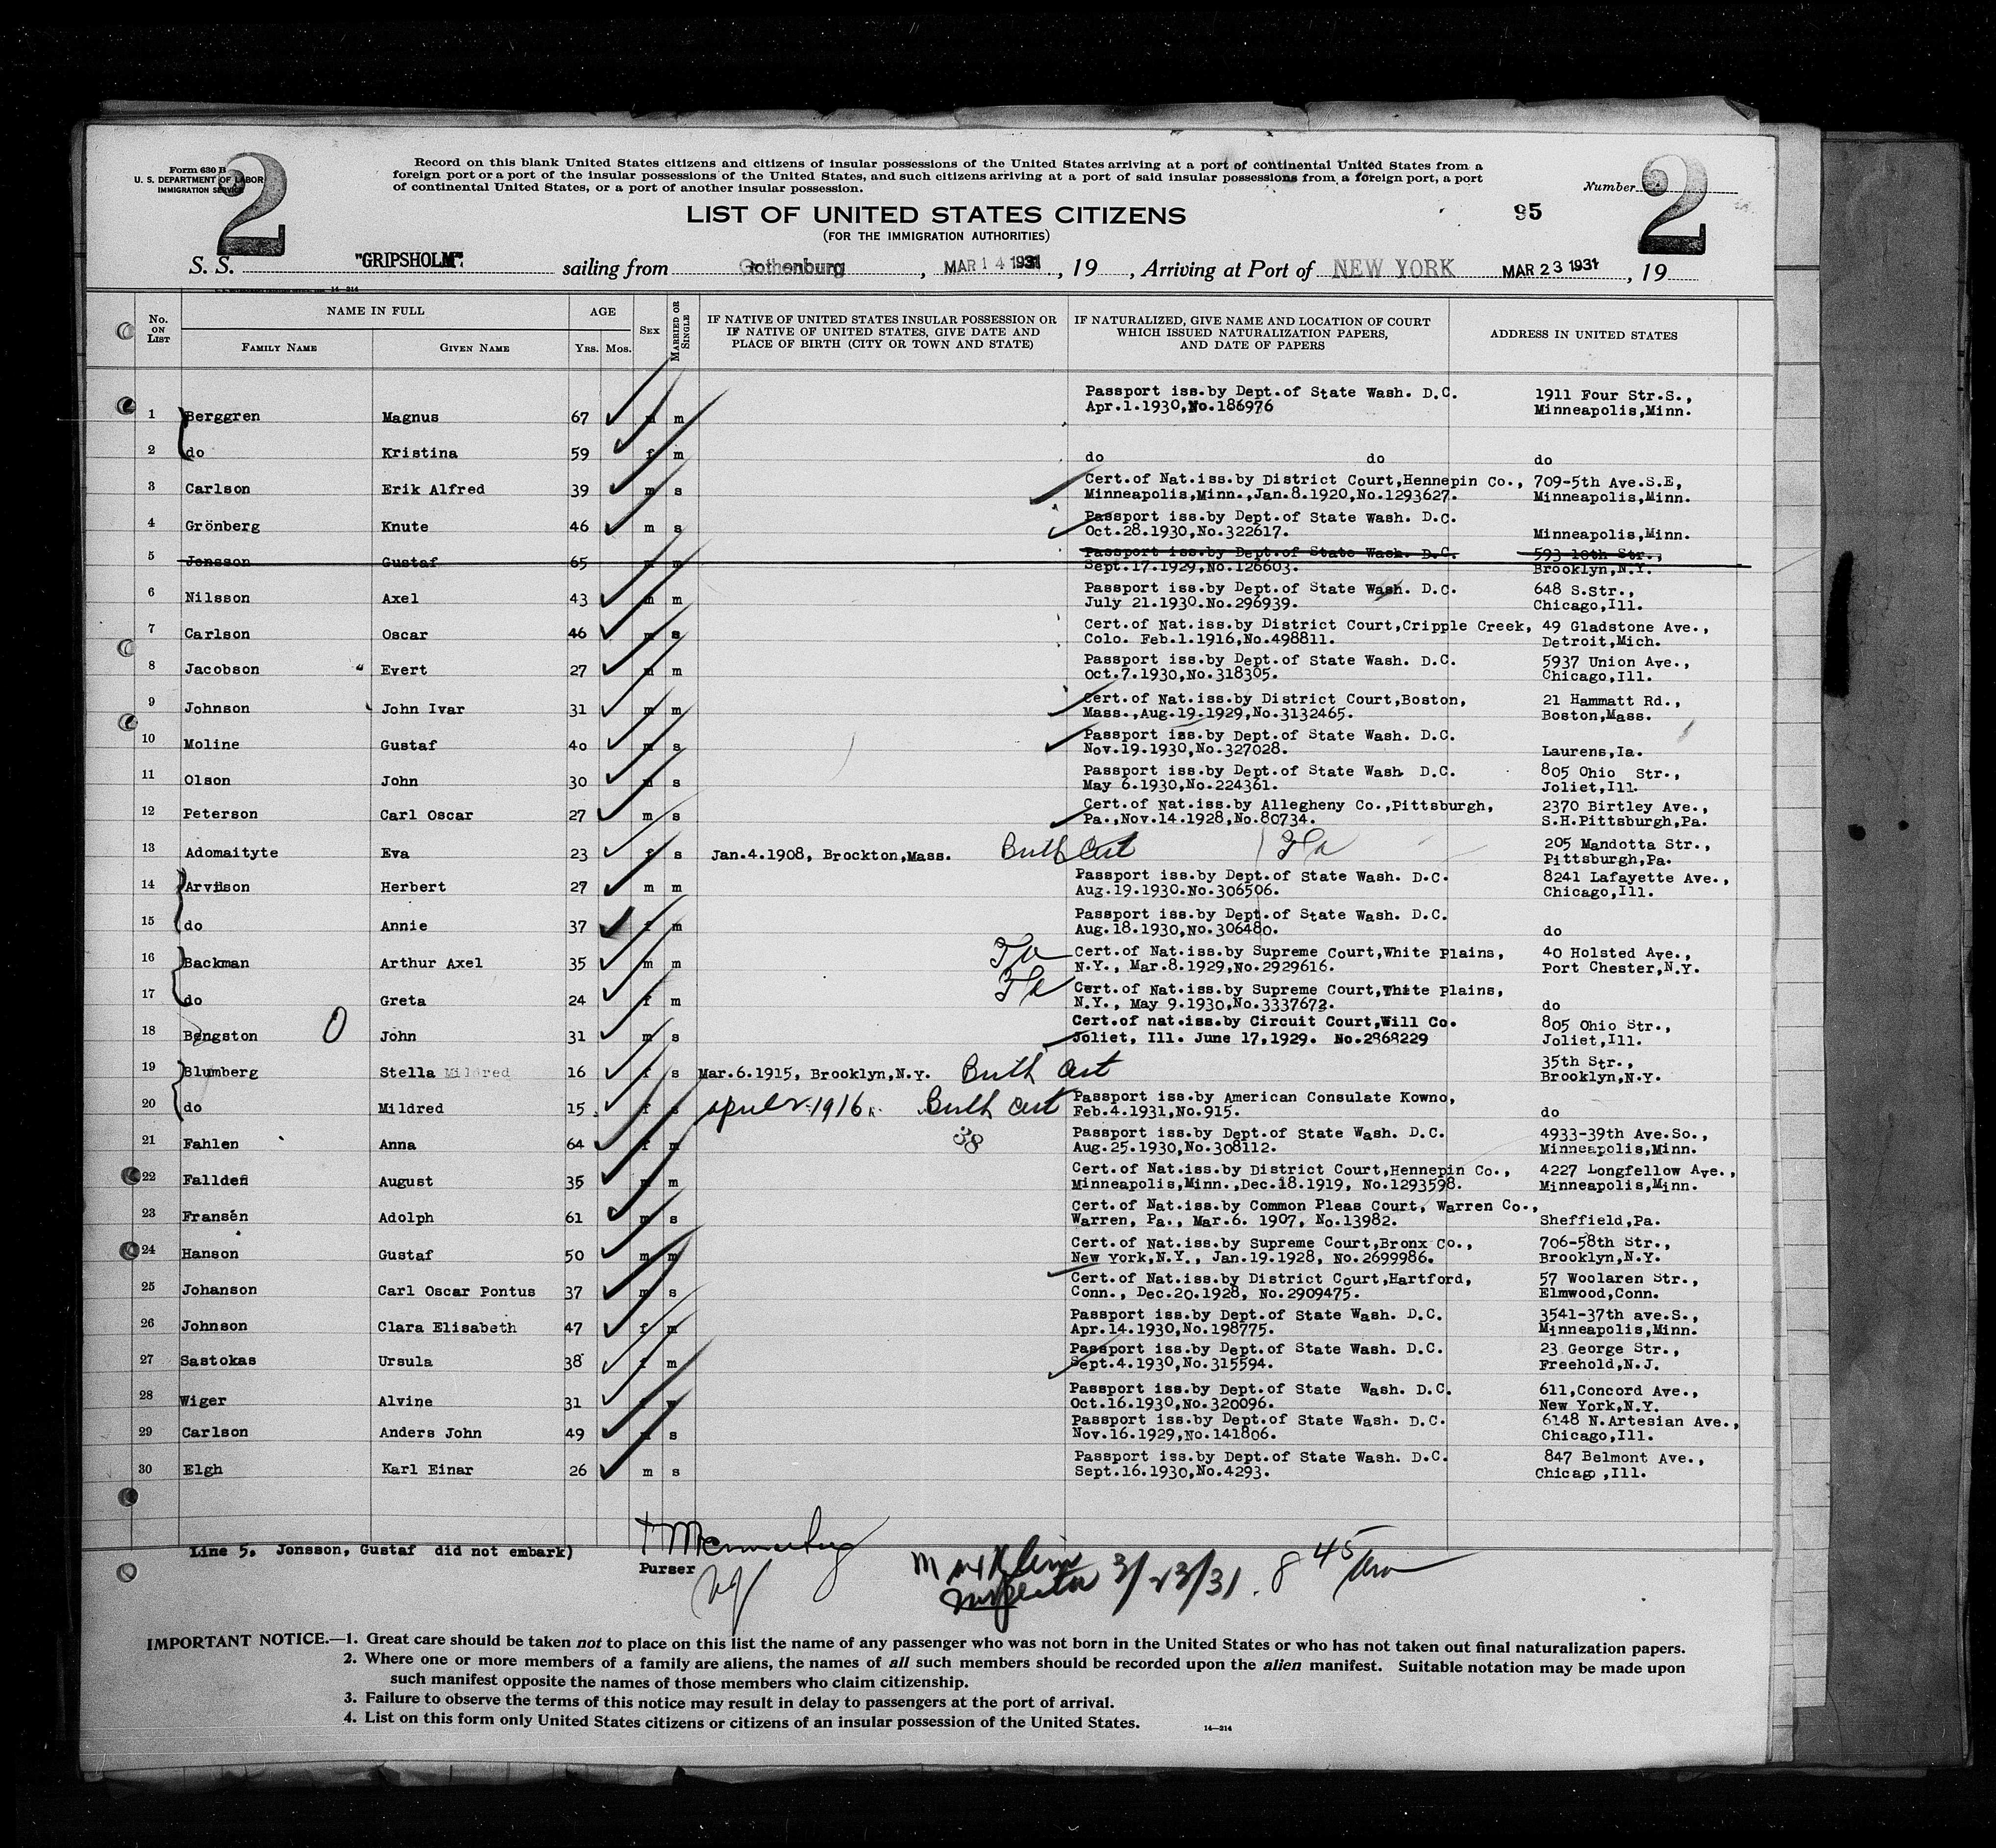 Form 630 B
U. S. DEPARTMENT OF LABOR
IMMIGRATION SERVICE
2
Record on this blank United States citizens and citizens of insular possessions of the United States arriving at a port of continental United States from a
foreign port or a port of the insular possessions of the United States, and such citizens arriving at a port of said insular possessions from a foreign port, a port
of continental United States, or a port of another insular possession.
Number
2
LIST OF UNITED STATES CITIZENS
95
(FOR THE IMMIGRATION AUTHORITIES)
S. S. "GRIPSHOLM" sailing from Gothenburg, MAR 14 1931, 19 , Arriving at Port of NEW YORK MAR 23 1931, 19
No. ON LIST NAME IN FULL FAMILY NAME GIVEN NAME AGE YRS. MOS. SEX MARRIED OR SINGLE IF NATIVE OF UNITED STATES INSULAR POSSESSION OR IF NATIVE OF UNITED STATES, GIVE DATE AND PLACE OF BIRTH (CITY OR TOWN AND STATE) IF NATURALIZED, GIVE NAME AND LOCATION OF COURT WHICH ISSUED NATURALIZATION PAPERS, AND DATE OF PAPERS ADDRESS IN UNITED STATES
Passport iss.by Dept.of State Wash. D.C. 1911 Four Str.S.,
1 Berggren Magnus 67 m m Apr.1.1930,No.186976 Minneapolis,Minn.
2 do Kristina 59 f m do do do
3 Carlson Erik Alfred 39 m s Cert.of Nat.iss.by District Court,Hennepin Co., 709-5th Ave.S.E,
Minneapolis,Minn.,Jan.8.1920,No.1293627. Minneapolis,Minn.
4 Grönberg Knute 46 m s Passport iss.by Dept.of State Wash. D.C.
Oct.28.1930,No.322617. Minneapolis,Minn.
5 Jonsson Gustaf 65 m m Passport iss.by Dept.of State Wash. D.C. 593 10th Str.,
Sept.17.1929,No.126603. Brooklyn,N.Y.
6 Nilsson Axel 43 m m Passport iss.by Dept.of State Wash. D.C. 648 S.Str.,
July 21.1930.No.296939. Chicago,Ill.
7 Carlson Oscar 46 m s Cert.of Nat.iss.by District Court,Cripple Creek, 49 Gladstone Ave.,
Colo. Feb.1.1916,No.498811. Detroit,Mich.
8 Jacobson Evert 27 m m Passport iss.by Dept.of State Wash. D.C. 5937 Union Ave.,
Oct.7.1930,No.318305. Chicago,Ill.
9 Johnson John Ivar 31 m m Cert.of Nat.iss.by District Court,Boston, 21 Hammatt Rd.,
Mass.,Aug.19.1929,No.3132465. Boston,Mass.
10 Moline Gustaf 40 m s Passport iss.by Dept.of State Wash. D.C.
Nov.19.1930,No.327028. Laurens,Ia.
11 Olson John 30 m s Passport iss.by Dept.of State Wash D.C. 805 Ohio Str.,
May 6.1930,No.224361. Joliet,Ill.
12 Peterson Carl Oscar 27 m s Cert.of Nat.iss.by Allegheny Co.,Pittsburgh, 2370 Birtley Ave.,
Pa.,Nov.14.1928,No.80734. S.H.Pittsburgh,Pa.
13 Adomaityte Eva 23 f s Jan.4.1908, Brockton,Mass. Birth Cert 205 Mandotta Str.,
Pittsburgh,Pa.
14 Arvidson Herbert 27 m m Passport iss.by Dept.of State Wash. D.C. 8241 Lafayette Ave.,
Aug.19.1930.No.306506. Chicago,Ill.
15 do Annie 37 f m Passport iss.by Dept.of State Wash. D.C.
Aug.18.1930,No.306480. do
16 Backman Arthur Axel 35 m m Cert.of Nat.iss.by Supreme Court,White Plains, 40 Holsted Ave.,
N.Y., Mar.8.1929,No.2929616. Port Chester,N.Y.
17 do Greta 24 f m Cert.of Nat.iss.by Supreme Court,White Plains,
N.Y., May 9.1930,No.3337672. do
18 Bengston O John 31 m s Cert.of nat.iss.by Circuit Court,Will Co. 805 Ohio Str.,
Joliet, Ill. June 17,1929. No.2868229 Joliet,Ill.
19 Blumberg Stella Mildred 16 f s Mar.6.1915, Brooklyn,N.Y. Birth Cert 35th Str.,
Brooklyn,N.Y.
20 do Mildred 15 f s April 2 1916 Birth Cert Passport iss.by American Consulate Kowno,
Feb.4.1931,No.915. do
21 Fahlen Anna 64 f m 38 Passport iss.by Dept.of State Wash. D.C. 4933-39th Ave.So.,
Aug.25.1930,No.308112. Minneapolis,Minn.
22 Fallden August 35 m m Cert.of Nat.iss.by District Court,Hennepin Co., 4227 Longfellow Ave.,
Minneapolis,Minn.,Dec.18.1919, No.1293598. Minneapolis,Minn.
23 Fransén Adolph 61 m s Cert.of Nat.iss.by Common Pleas Court, Warren Co.,
Warren, Pa., Mar.6. 1907, No.13982. Sheffield,Pa.
24 Hanson Gustaf 50 m m Cert.of Nat.iss.by Supreme Court,Bronx Co., 706-58th Str.,
New York,N.Y., Jan.19.1928, No.2699986. Brooklyn,N.Y.
25 Johanson Carl Oscar Pontus 37 m s Cert.of Nat.iss.by District Court,Hartford, 57 Woolaren Str.,
Conn., Dec.20.1928, No.2909475. Elmwood,Conn.
26 Johnson Clara Elisabeth 47 f m Passport iss.by Dept.of State Wash. D.C. 3541-37th ave.S.,
Apr.14.1930,No.198775. Minneapolis,Minn.
27 Sastokas Ursula 38 f m Passport iss.by Dept.of State Wash. D.C. 23 George Str.,
Sept.4.1930,No.315594. Freehold,N.J.
28 Wiger Alvine 31 f m Passport iss.by Dept.of State Wash. D.C. 611,Concord Ave.,
Oct.16.1930,No.320096. New York,N.Y.
29 Carlson Anders John 49 m s Passport iss.by Dept.of State Wash. D.C. 6148 N.Artesian Ave.,
Nov.16.1929,No.141806. Chicago,Ill.
30 Elgh Karl Einar 26 m s Passport iss.by Dept.of State Wash. D.C. 847 Belmont Ave.,
Sept.16.1930,No.4293. Chicago,Ill.
Line 5. Jonsson, Gustaf did not embark)
Purser
Inspector 3/23/31. 8 45
IMPORTANT NOTICE.—1. Great care should be taken not to place on this list the name of any passenger who was not born in the United States or who has not taken out final naturalization papers.
2. Where one or more members of a family are aliens, the names of all such members should be recorded upon the alien manifest. Suitable notation may be made upon
such manifest opposite the names of those members who claim citizenship.
3. Failure to observe the terms of this notice may result in delay to passengers at the port of arrival.
4. List on this form only United States citizens or citizens of an insular possession of the United States.
14—214